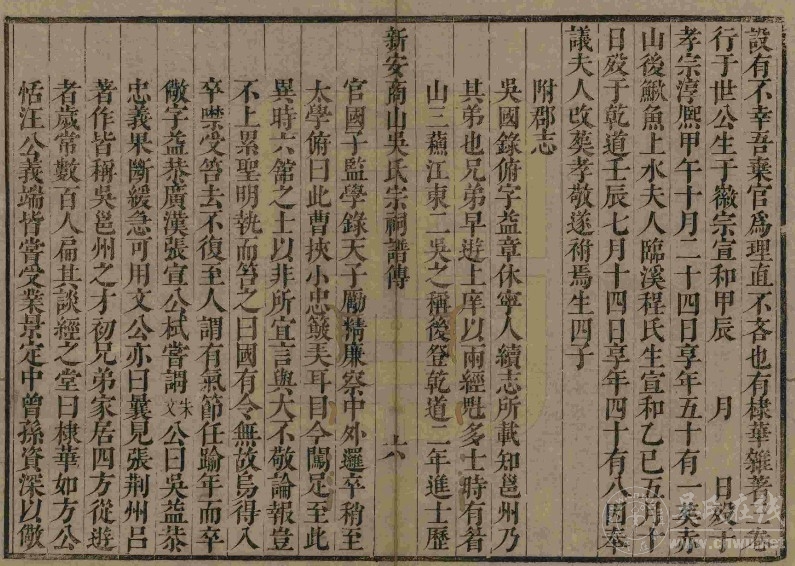 設有不幸吾棄官爲理直不吝也有棣華雜著
行于世公生于徽宗宣和甲辰　月　日殁
孝宗淳熙甲午十月二十四日享年五十有一葬亦
山後鰍魚上水夫人臨溪程氏生宣和乙巳五月十
日殁于乾道壬辰七月十四日享年四十有八因奉
議夫人改葬孝敬遂祔焉生四子
附郡志
吳國錄俯字益章休寧人續志所載知邕州乃
其弟也兄弟早遊上庠以兩經魁多士時有眉
山三蘇江東二吳之稱後登乾道二年進士歷
新安商山吳氏宗祠譜傳
六
官國子監學錄天子勵精廉察中外邏卒稍至
太學俯曰此曹挾小忠皷夫耳目今闖足至此
異時六舘之士以非所宜言與大不敬論報豈
不上累聖明執而笞之曰國有令無故烏得入
卒噤受笞去不復至人謂有氣節任踰年而卒
儆字益恭廣漢張宣公栻嘗謂朱文公曰吳益恭
忠義果斷緩急可用文公亦曰曩見張荆州呂
著作皆稱吳邕州之才初兄弟家居四方從遊
者歲常數百人扁其談經之堂曰棣華如方公
恬汪公義端皆嘗受業景定中曾孫資深以儆
吴氏在线
www.cnwu.net